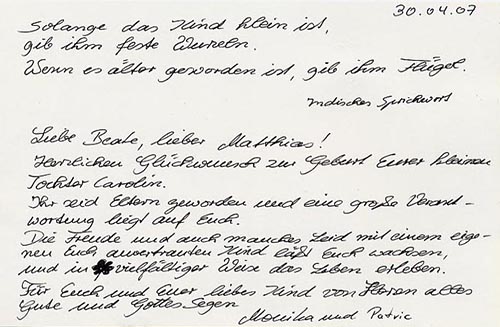 30.04.07
Solange das Kind klein ist,
gib ihm feste Wurzeln.
Wenn es älter geworden ist, gib ihm Flügel.
Indisches Sprichwort
Liebe Beate, lieber Matthias!
Herzlichen Glückwunsch zur Geburt Eurer kleinen
Tochter Carolin.
Ihr seid Eltern geworden und eine große Verant-
wortung liegt auf Euch.
Die Freude und auch manches Leid mit einem eige-
nen Euch anvertrauten Kind läßt Euch wachsen,
und in vielfältiger Weise das Leben erleben.
Für Euch und Euer liebes Kind von Herzen alles
Gute und Gottes Segen
Monika und Patric